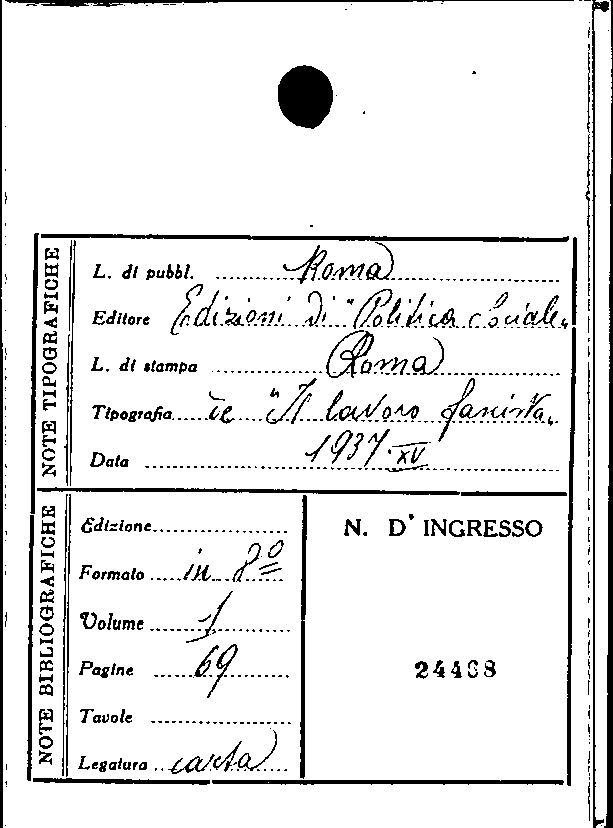 NOTE TIPOGRAFICHE
L. di pubbl. Roma
Editore Edizioni di "Politica Sociale„
L. di stampa Roma
Tipografia de "Il lavoro fascista„
Data 1937·XV
NOTE BIBLIOGRAFICHE
Edizione
Formato in 8º
Volume 1
Pagine 69
Tavole
Legatura carta
N. D' INGRESSO
24468